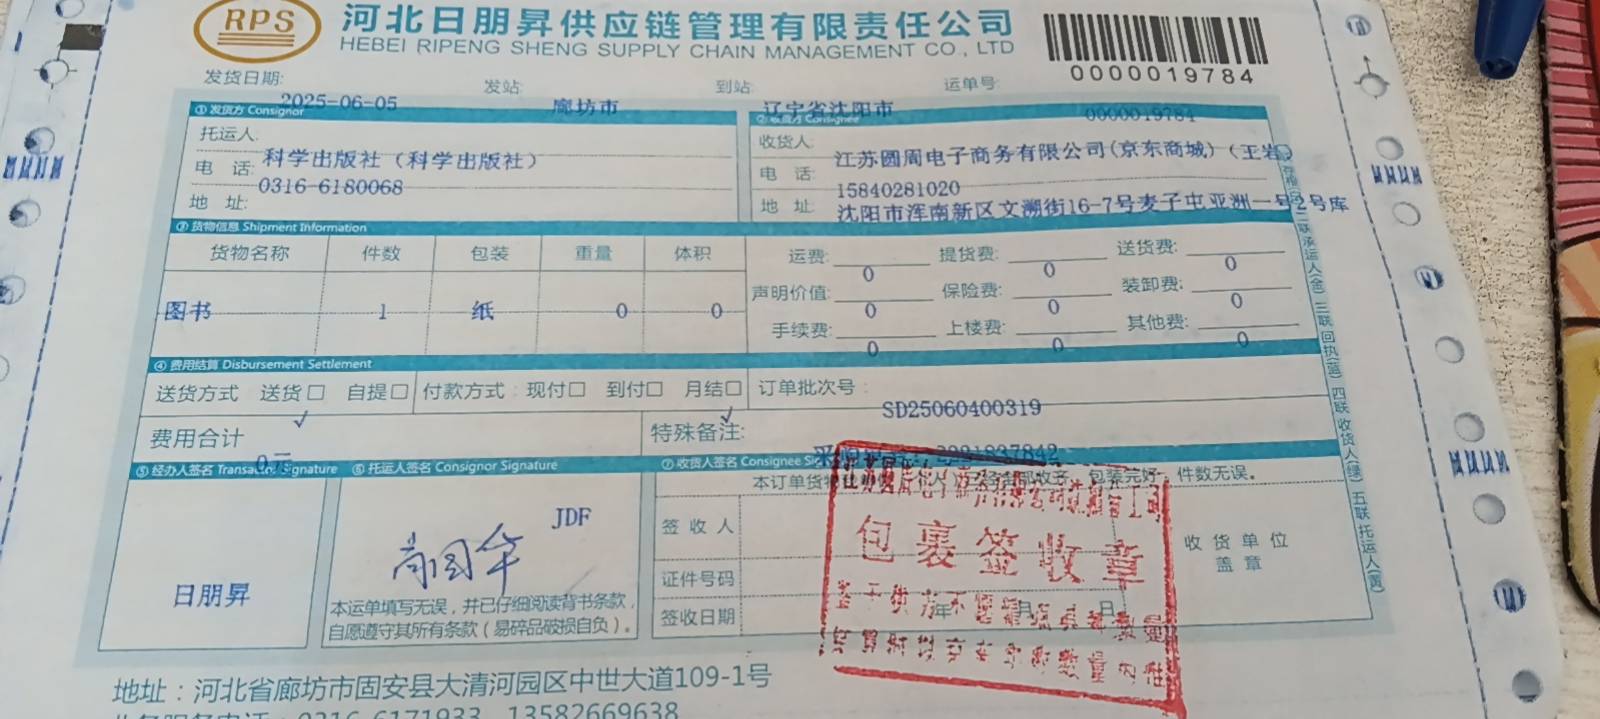 RPS
河北日朋昇供应链管理有限责任公司
HEBEI RIPENG SHENG SUPPLY CHAIN MANAGEMENT CO., LTD
0000019784
发货日期: 2025-06-05 发站: 廊坊市 到站: 辽宁省沈阳市 运单号: 0000019784
① 发货方 Consignor
托运人: 科学出版社（科学出版社）
电 话: 0316-6180068
地 址:
② 收货方 Consignee
收货人: 江苏圆周电子商务有限公司(京东商城)（王岩）
电 话: 15840281020
地 址: 沈阳市浑南新区文溯街16-7号麦子屯亚洲一号2号库
③ 货物信息 Shipment Information
货物名称 件数 包装 重量 体积
图书 1 纸 0 0
运费: 0 提货费: 0 送货费: 0
声明价值: 0 保险费: 0 装卸费: 0
手续费: 0 上楼费: 0 其他费: 0
④ 费用结算 Disbursement Settlement
送货方式 送货□ 自提□ 付款方式: 现付□ 到付□ 月结□ 订单批次号:
✓ ✓ SD25060400319
费用合计 0元 特殊备注:
⑤ 经办人签名 Transactor Signature ⑥ 托运人签名 Consignor Signature ⑦ 收货人签名 Consignee
包装完好，件数无误。
JDF
日朋昇
本运单填写无误，并已仔细阅读背书条款，
自愿遵守其所有条款（易碎品破损自负）。
签 收 人
证件号码
签收日期 年 月 日
收 货 单 位
盖 章
包裹签收章
三联回执(蓝) 四联收货人(绿) 五联托运人(黄)
地址：河北省廊坊市固安县大清河园区中世大道109-1号
业务服务电话：0316-6171933 13582669638